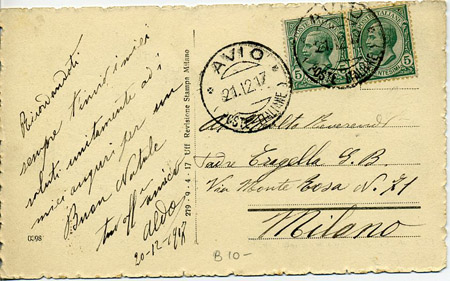 Ricordandoti
sempre t'invio i miei
saluti unitamente ad i
miei auguri per un
Buon Natale
tuo aff. amico
Aldo
20-12-1917
0398
279 - 4 - 17 Uff Revisione Stampa Milano
AVIO
21.12.17
POSTE ITALIANE
AVIO
21.12
POSTE ITALIANE
5 5
Al Molto Reverendo
Padre Eugella G. B.
Via Monte Rosa N. 71
Milano
B 10-